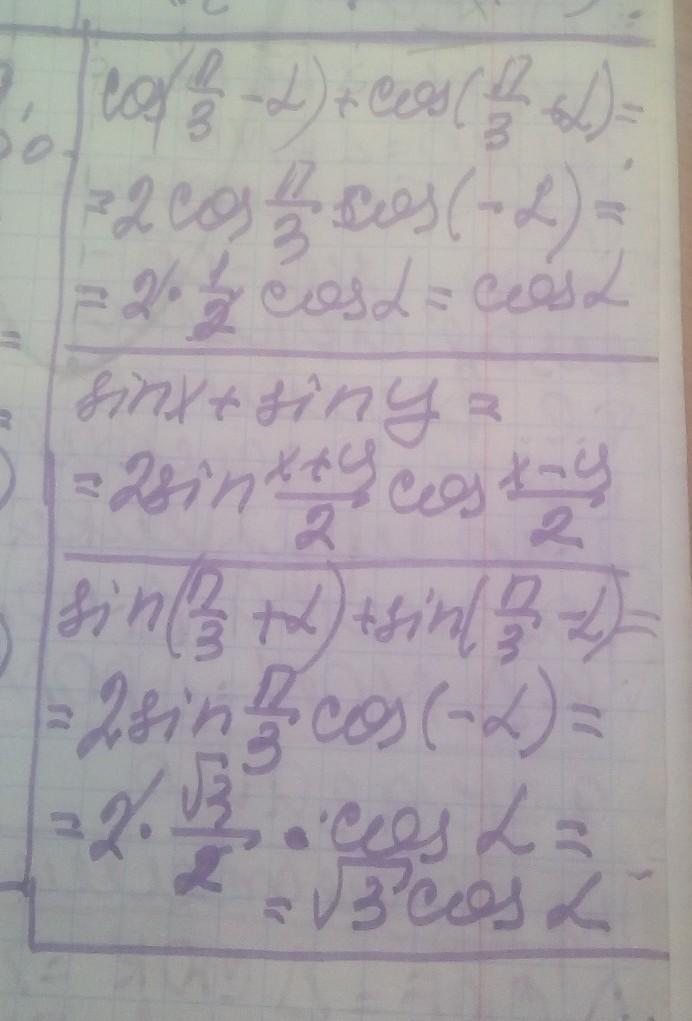 cos(π/3 - α) + cos(π/3 + α) =
= 2 cos π/3 cos(-α) =
= 2 · 1/2 cos α = cos α
sin x + sin y =
= 2 sin (x+y)/2 cos (x-y)/2
sin(π/3 + α) + sin(π/3 - α) =
= 2 sin π/3 cos(-α) =
= 2 · √3/2 · cos α =
= √3 cos α